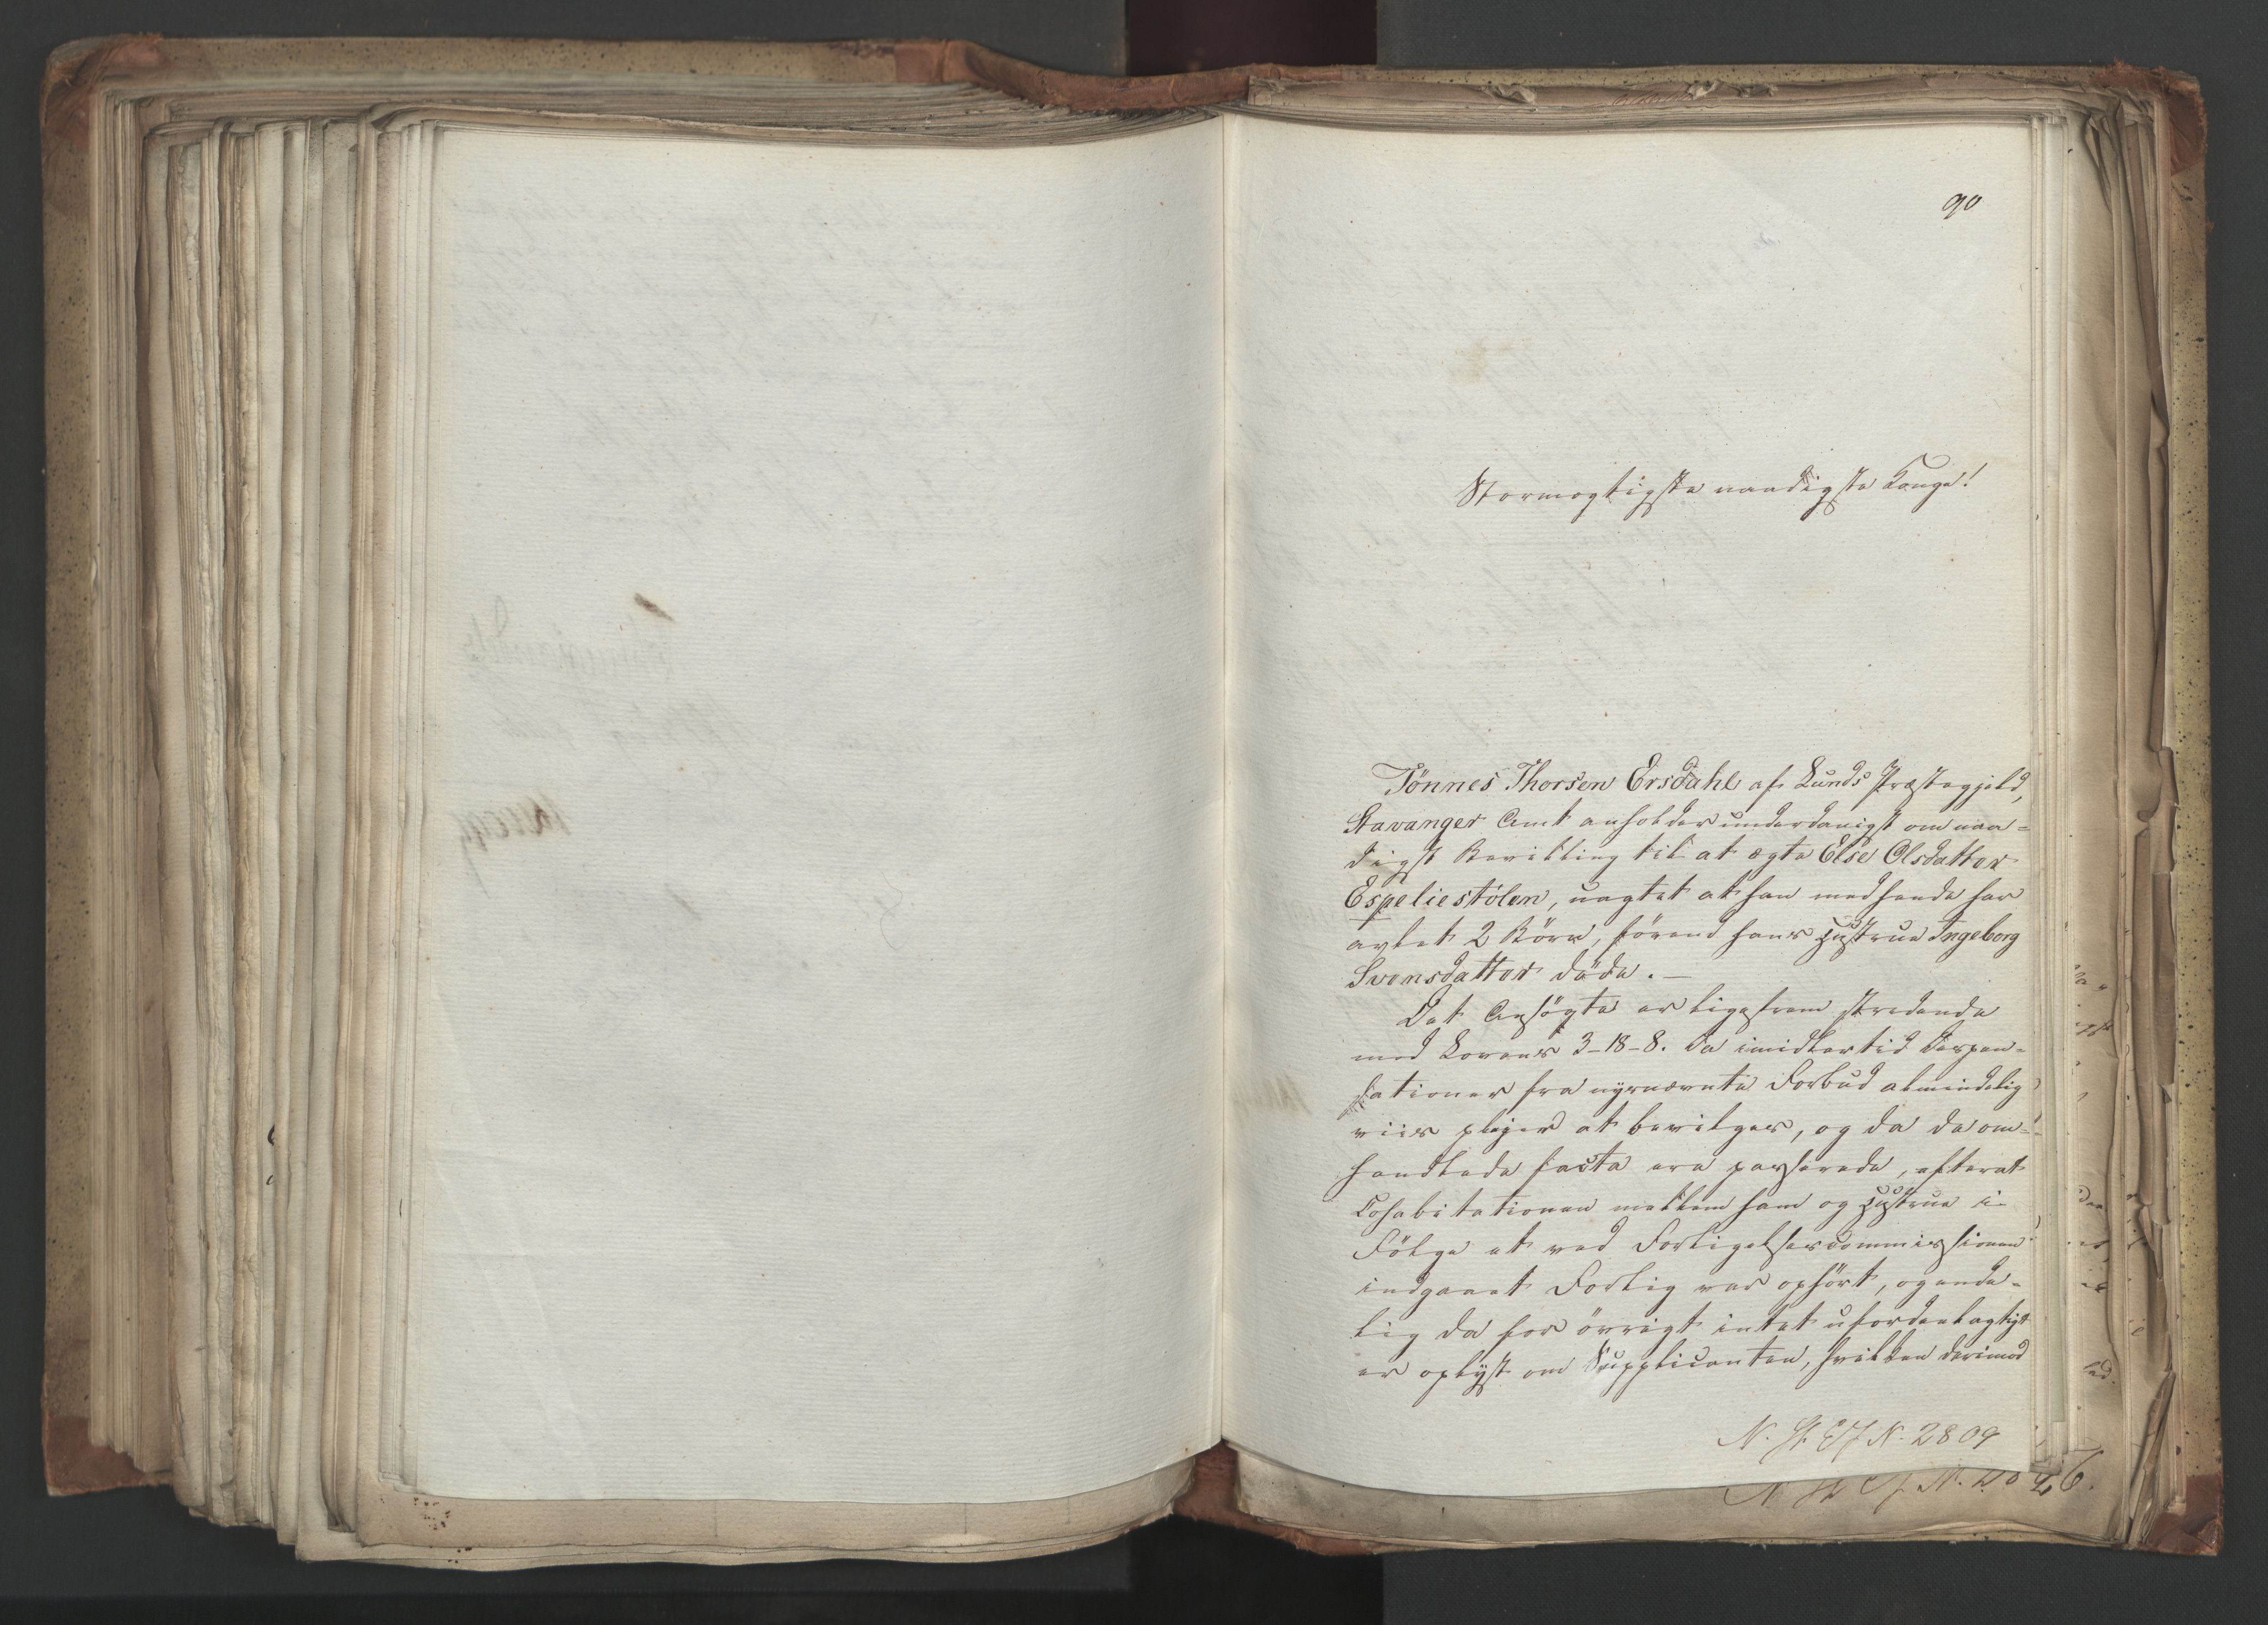 90
Stormægtigste naadigste Konge!
Tönnes Thorsen Ersdahl af Lunds Præstegjeld,
Stavanger Amt anholder underdanigst om naa-
digst Bevilling til at ægte Else Olsdatter
Espeliestölen, uagtet at han med hende har
avlet 2 Börn, förend hans Hustrue Ingeborg
Svensdatter döde. —
Det Ansögte er ligefrem stridende
mod Lovens 3-18-8. Da imidlertid Dispen-
sationer fra nysnævnte Forbud almindelig
viis plejer at bevilges, og da de om-
handlede facta ere passerede, efterat
Cohabitationen mellem ham og Hustrue i
Fölge et ved Forligelsescommissionen
indgaaet Forlig var ophört, og ende-
lig da for övrigt intet ufordeelagtigt
er oplyst om Supplicanten, hvilken derimod
N. St. Ex. N. 2809
26.